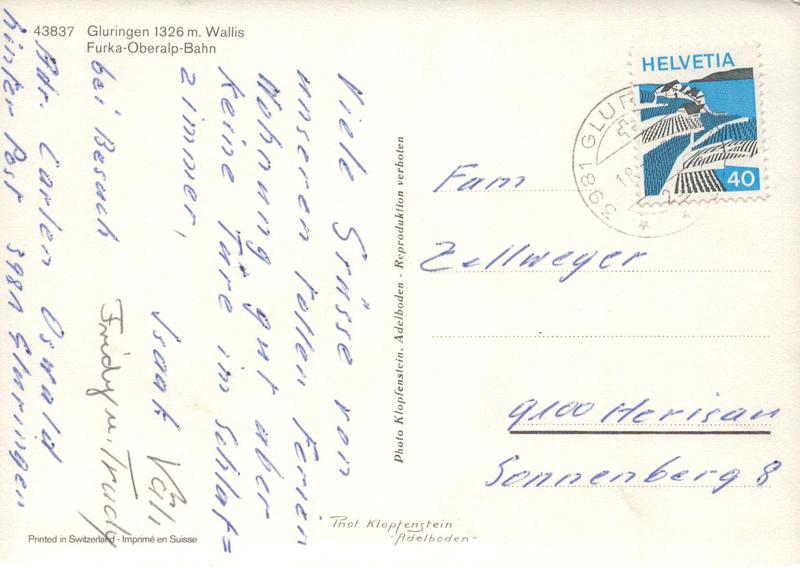 43837 Gluringen 1326 m. Wallis
Furka-Oberalp-Bahn
Viele Grüsse von
unseren tollen Ferien
Wohnung, gut aber
keine Türe im Schlaf=
zimmer,
Isaak Välli
Fridy u. Trudy
bei Besuch
Adr. Carlen Oswald
hinter Post 3981 Gluringen
Photo Klopfenstein, Adelboden - Reproduktion verboten
HELVETIA
40
3981 GLUR
Fam
Zellweger
9100 Herisau
Sonnenberg 8
Phot. Klopfenstein
-Adelboden-
Printed in Switzerland - Imprimé en Suisse